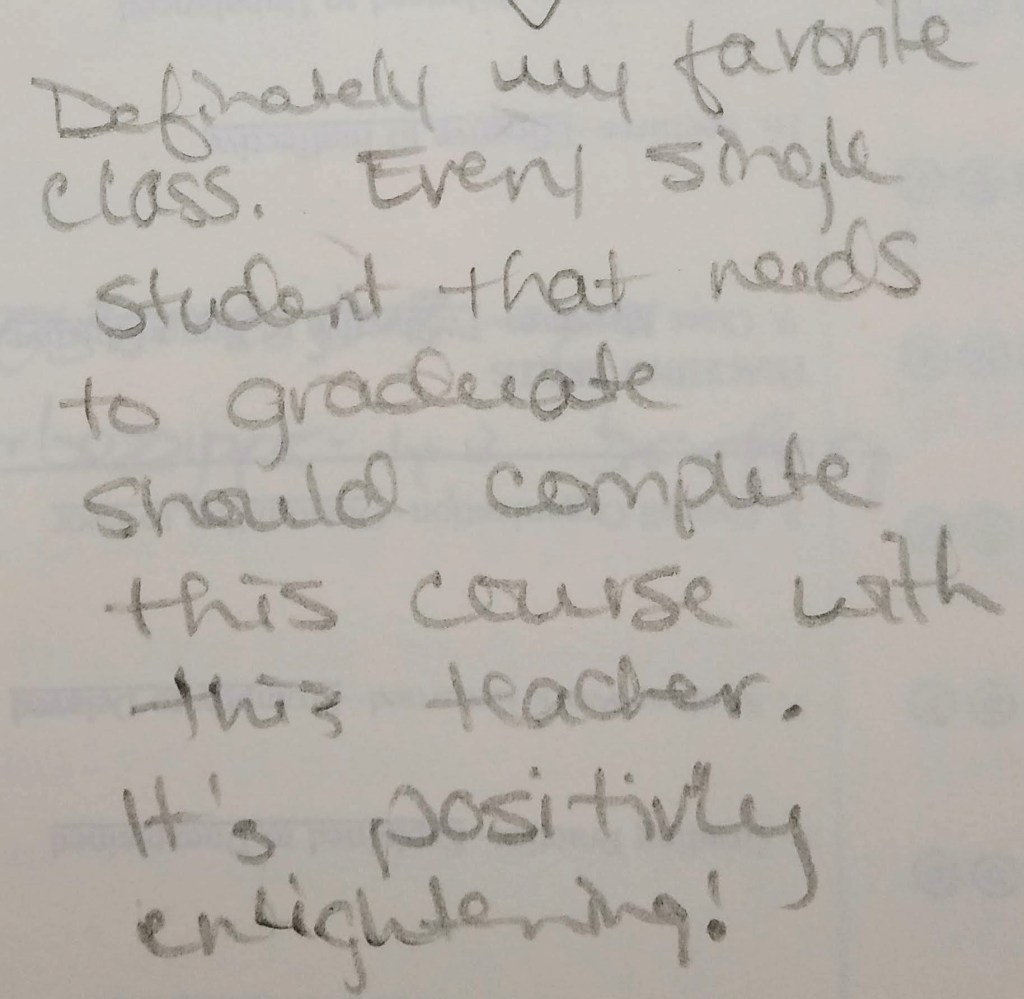 Definately my favorite
class. Every single
student that needs
to graduate
should complete
this course with
this teacher.
It's positivley
enlightening!